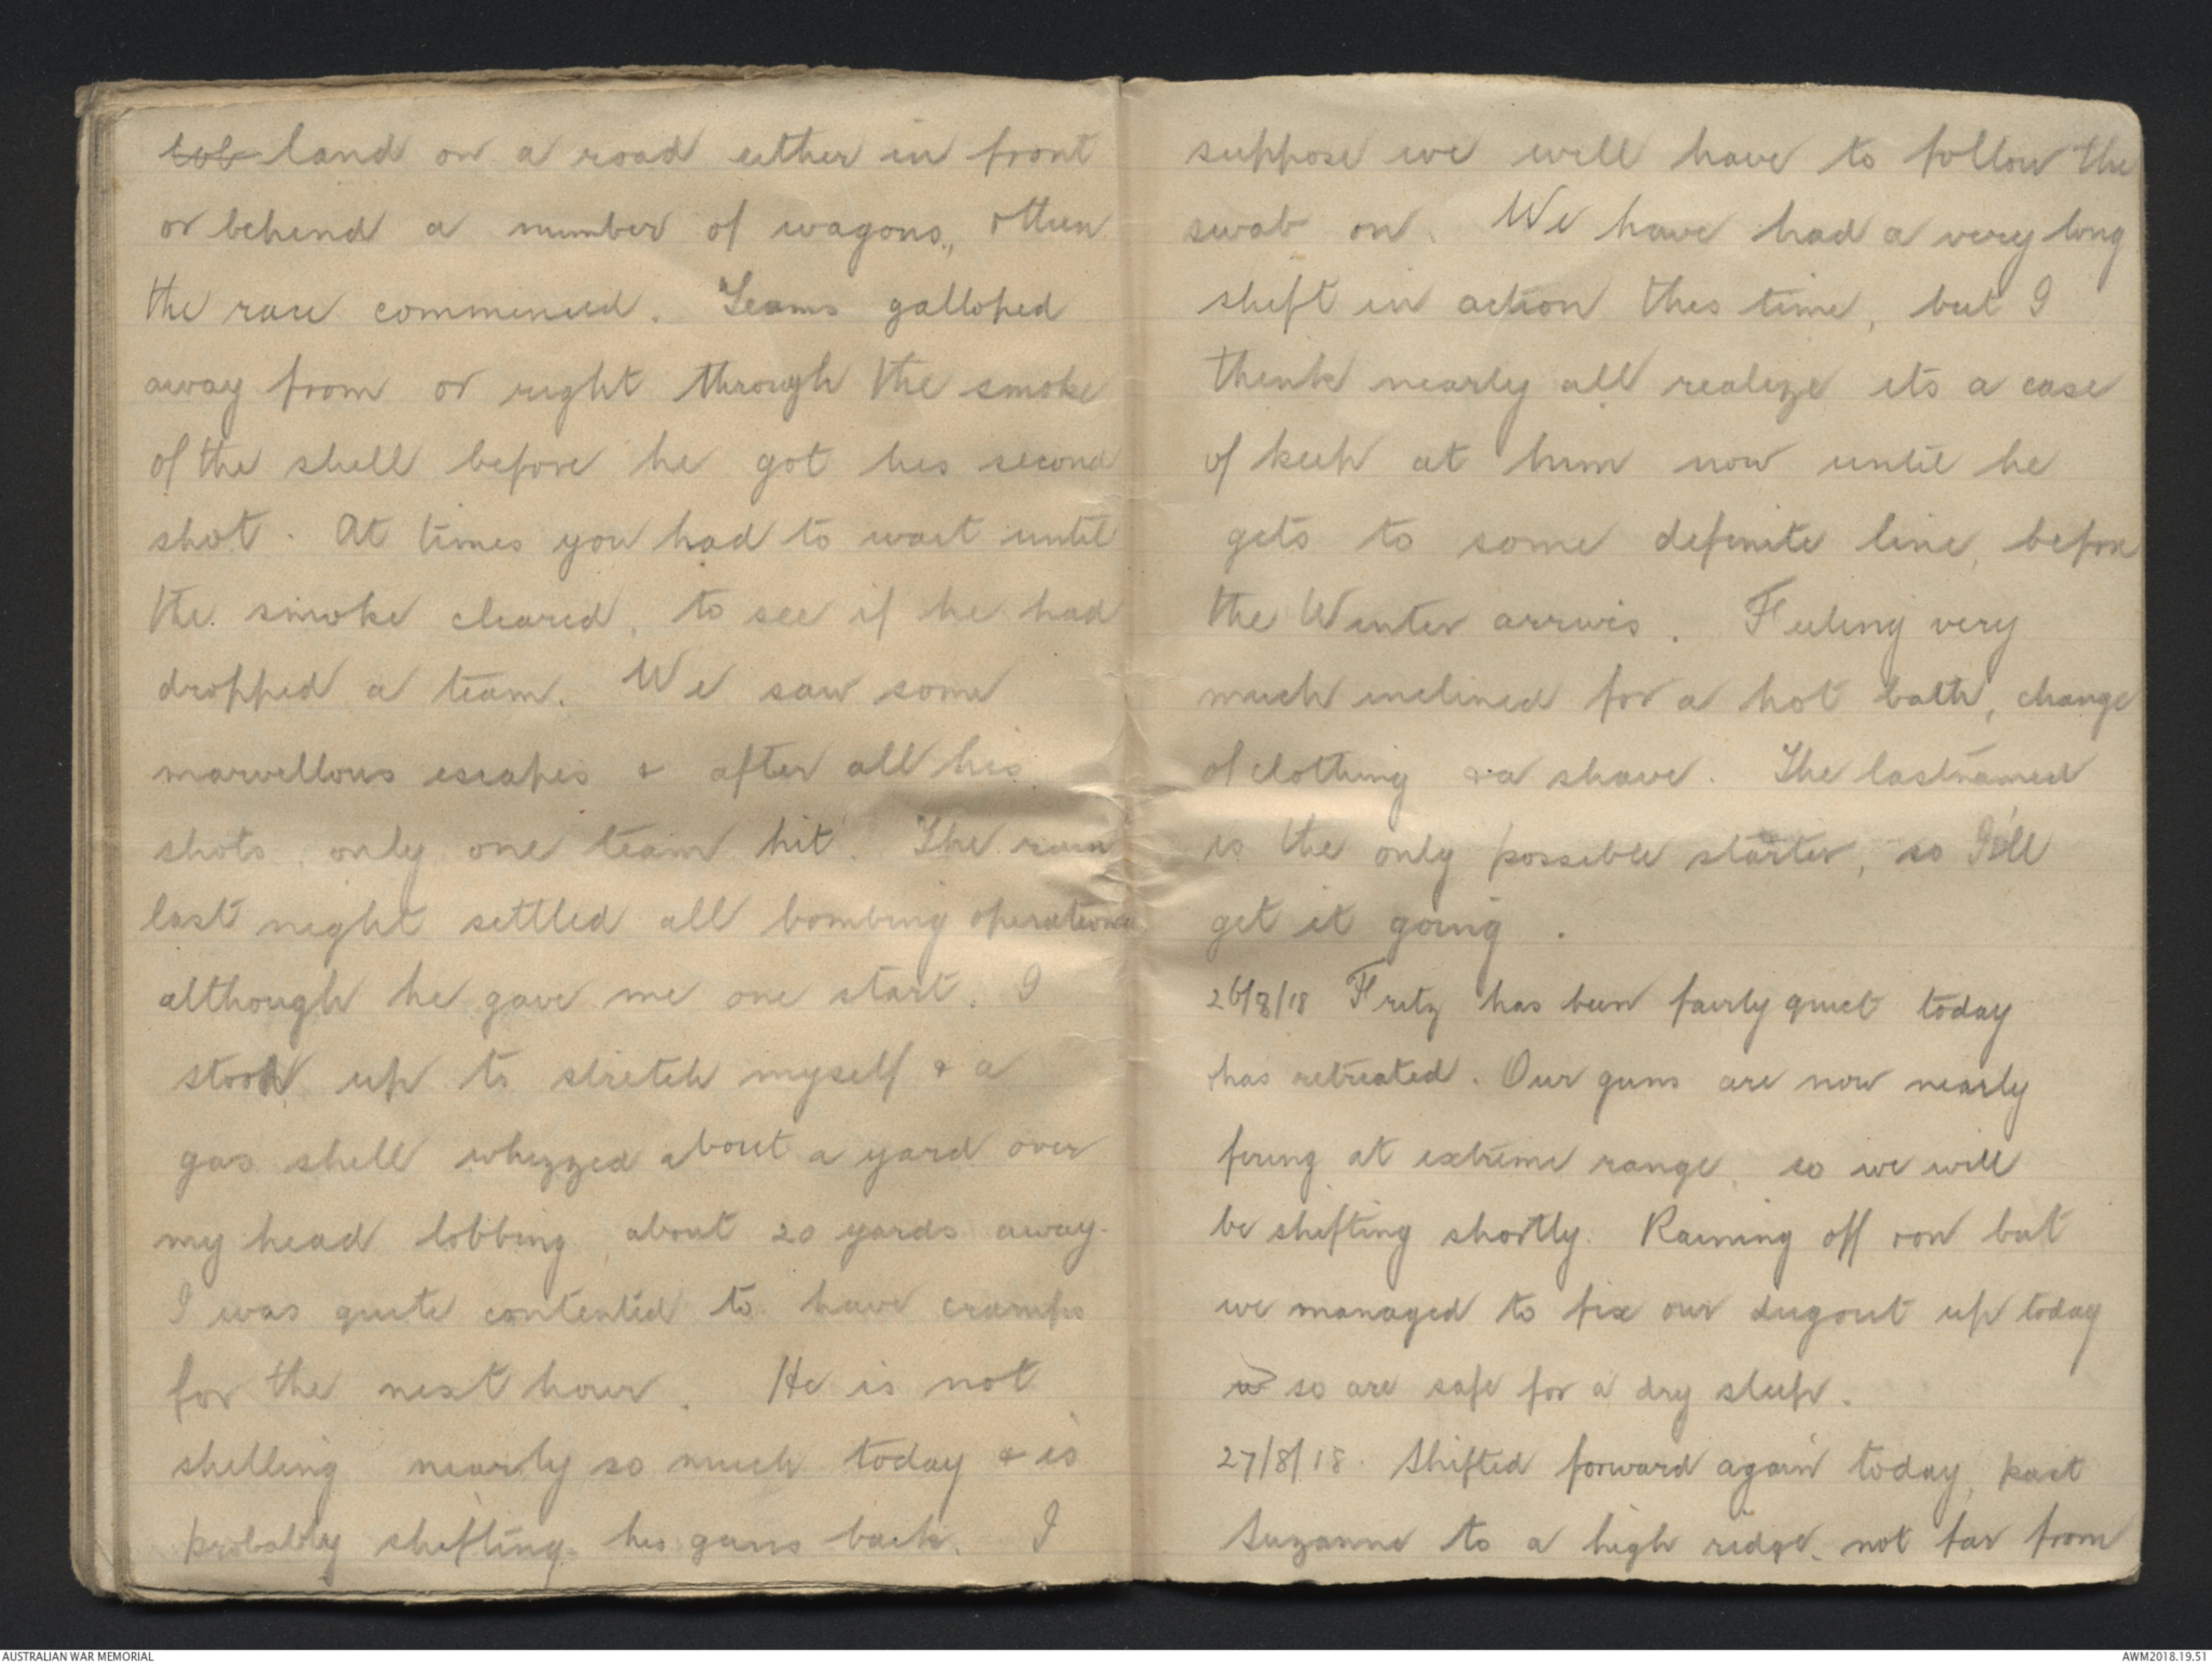 lob land on a road either in front
or behind a number of wagons, & then
the race commenced. Teams galloped
away from or right through the smoke
of the shell before he got his second
shot. At times you had to wait until
the smoke cleared, to see if he had
dropped a team. We saw some
marvellous escapes & after all his
shots, only one team hit. The rain
last night settled all bombing operations
although he gave me one start. I
stood up to stretch myself & a
gas shell whizzed about a yard over
my head lobbing about 20 yards away.
I was quite contented to have cramps
for the next hour. He is not
shelling nearly so much today & is
probably shifting his guns back. I
suppose we will have to follow the
swab on. We have had a very long
shift in action this time, but I
think nearly all realize its a case
of keep at him now until he
gets to some definite line, before
the Winter arrives. Feeling very
much inclined for a hot bath, change
of clothing & a shave. The lastnamed
is the only possible starter, so I'll
get it going.
26/8/18 Fritz has been fairly quiet today
& has retreated. Our guns are now nearly
firing at extreme range, so we will
be shifting shortly. Raining off & on but
we managed to fix our dugout up today
so are safe for a dry sleep.
27/8/18. Shifted forward again today, past
Suzanne to a high ridge, not far from
AUSTRALIAN WAR MEMORIAL
AWM2018.19.51